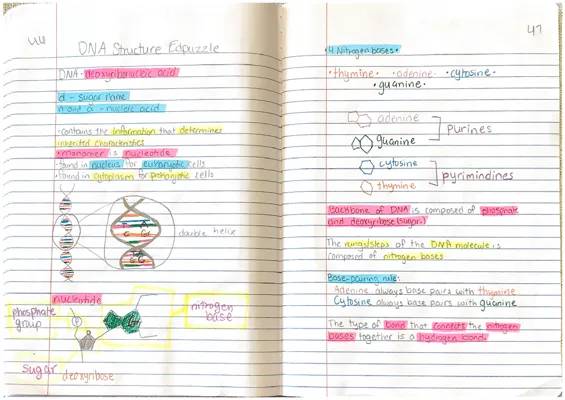 44
DNA Structure Edpuzzle
DNA - deoxyribonucleic acid
d - sugar name
n and a - nucleic acid
• contains the information that determines
inherited characteristics
• monomer is nucleotide
• found in nucleus for eukaryotic cells
• found in cytoplasm for prokaryotic cells
double helix
nucleotide
phosphate
group
nitrogen
base
sugar deoxyribose
47
• 4 Nitrogen bases •
• thymine • adenine • cytosine •
• guanine •
adenine
guanine
purines
cytosine
thymine
pyrimindines
Backbone of DNA is composed of phosphate
and deoxyribose (sugar)
The rungs/steps of the DNA molecule is
composed of nitrogen bases
Base-pairing rule:
Adenine always base pairs with thymine
Cytosine always base pairs with guanine
The type of bond that connects the nitrogen
bases together is a hydrogen bond.